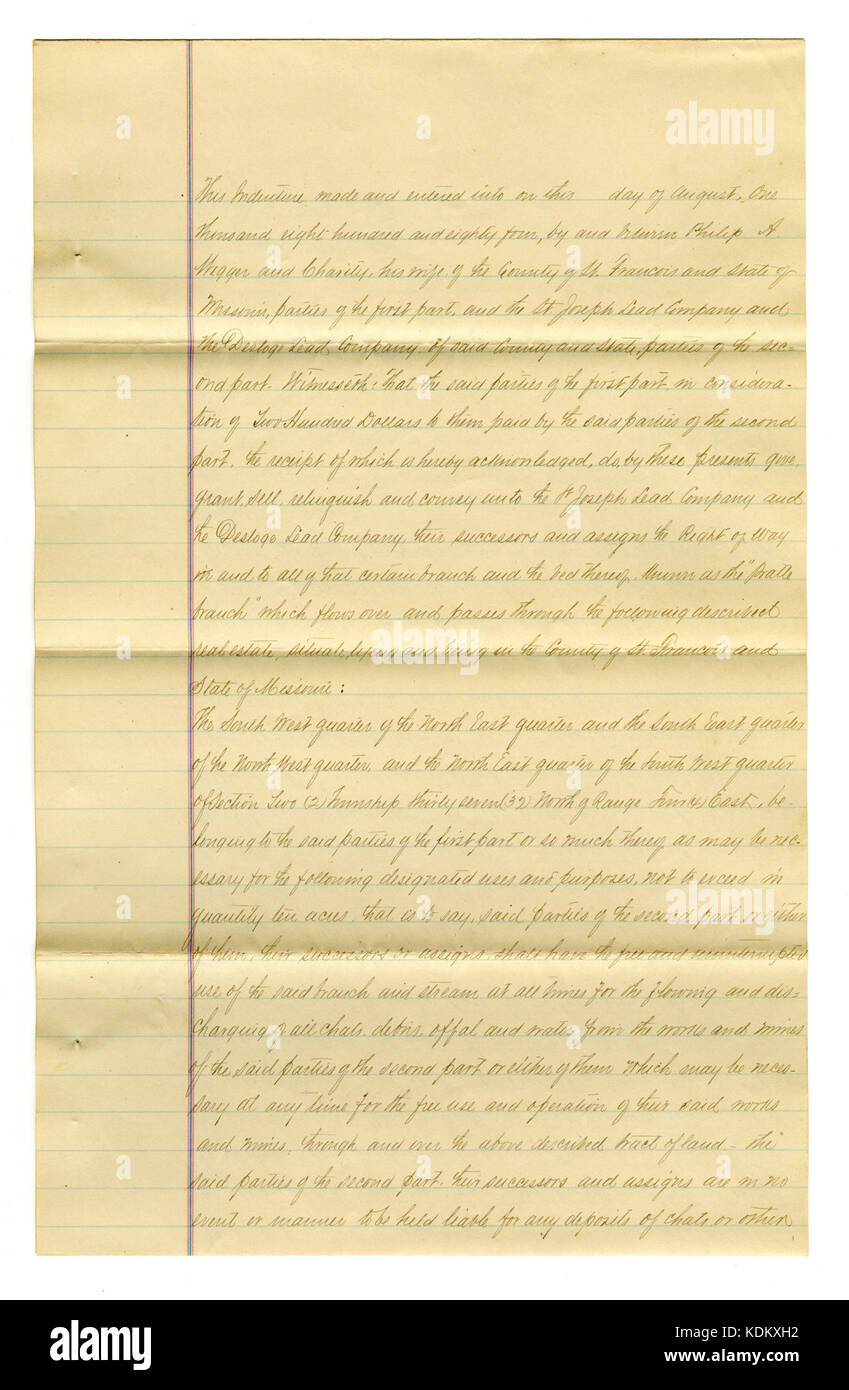 This Indenture made and entered into on this day of August, One
thousand eight hundred and eighty four, by and between Philip A
and Charity, his wife of the County of St. Francois and State of
Missouri, parties of the first part, and the St Joseph Lead Company and
the Desloge Lead Company of said County and State, parties of the sec-
ond part. Witnesseth: That the said parties of the first part, in considera-
tion of Two Hundred Dollars to them paid by the said parties of the second
part, the receipt of which is hereby acknowledged, do by these presents give,
grant, sell, relinquish and convey unto the St Joseph Lead Company and
the Desloge Lead Company, their successors and assigns the Right of Way
in and to all of that certain branch and the bed thereof, known as the "Pratte
branch" which flows over and passes through the following described
real estate, situate, lying and being in the County of St. Francois and
State of Missouri:
The South West quarter of the North East quarter and the South East quarter
of the North West quarter, and the North East quarter of the South West quarter
of Section Two (2) Township thirty seven (37) North of Range Four (4) East, be-
longing to the said parties of the first part or so much thereof as may be nec-
essary for the following designated uses and purposes, not to exceed in
quantity ten acres, that is to say, said parties of the second part or either
of them, their successors or assigns, shall have the free and uninterrupted
use of the said branch and stream at all times for the flowing and dis-
charging of all chats, debris, offal and water from the works and mines
of the said parties of the second part or either of them which may be neces-
sary at any time for the free use and operation of their said works
and mines, through and over the above described tract of land - the
said parties of the second part, their successors and assigns are in no
event or manner to be held liable for any deposits of chats or other
a
a
a
a
a
a
alamy
alamy
alamy
alamy
Image ID: KDKXH2
www.alamy.com